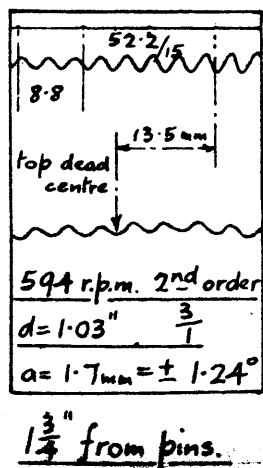 52·2/15
8·8
13·5mm
top dead
centre
594 r.p.m. 2nd order
d=1·03" 3/1
a= 1·7mm = ± 1·24°
1 3/4" from pins.